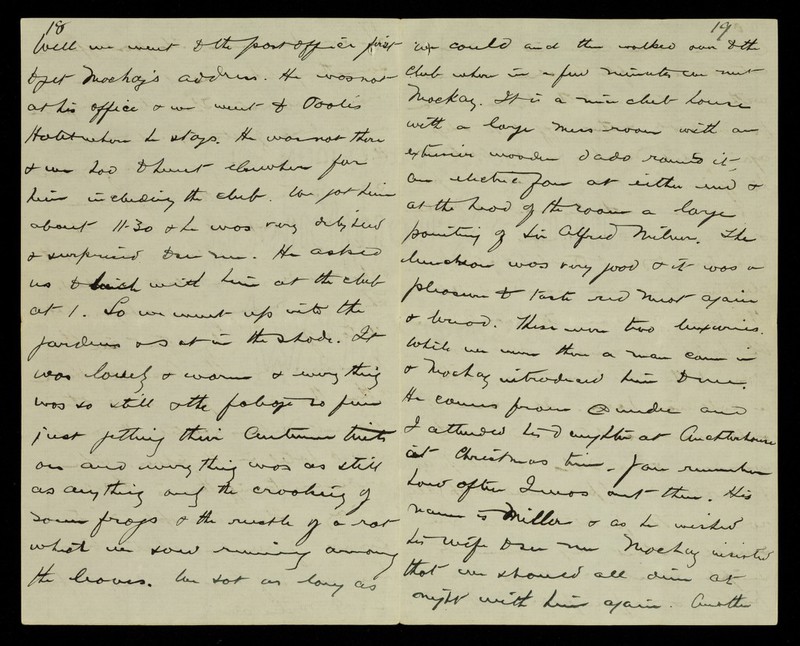 18
Well we went to the post office first
to get Mackay's address. He was not
at his office & we went to Poole's
Hotel where he stays. He was not there
& we had to hunt elsewhere for
him including the club. We got him
about 11-30 & he was very delighted
& surprised to see me. He asked
us to lunch with him at the club
at 1. So we went up into the
gardens & sat in the shade. It
was lovely & warm & everything
was so still & the foliage so fine
just getting their Autumn tints
on and everything was as still
as anything only the croaking of
some frogs & the rustle of a rat
which we saw running among
the leaves. We sat as long as
19
we could and then walked over to the
club where in a few minutes we met
Mackay. It is a nice club house
with a large mess-room with an
extensive wooden dado round it,
an electric fan at either end &
at the head of the room a large
painting of Sir Alfred Milner. The
luncheon was very good & it was a
pleasure to taste red meat again
& bread. These were two luxuries.
While we were there a man came in
& Mackay introduced him to me.
He comes from Dundee and
I attended his daughter at Auchterhouse
at Christmas time. You remember
how often I was out there. His
name is Millar & as he wished
his wife to see me Mackay insisted
that we should all dine at
night with him again. Another